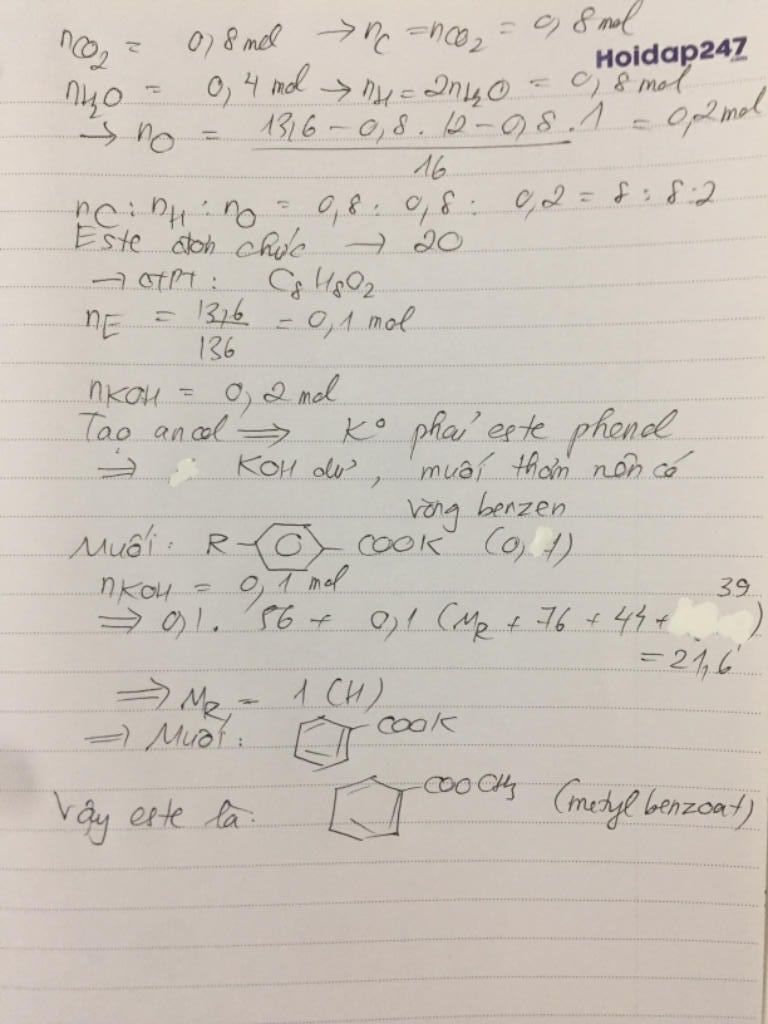 nCO₂ = 0,8 mol → nC = nCO₂ = 0,8 mol
Hoidap247.com
nH₂O = 0,4 mol → nH = 2nH₂O = 0,8 mol
→ nO = (13,6 - 0,8 . 12 - 0,8 . 1) / 16 = 0,2 mol
nC : nH : nO = 0,8 : 0,8 : 0,2 = 8 : 8 : 2
Este đơn chức → 2O
→ CTPT : C₈H₈O₂
nE = 13,6 / 136 = 0,1 mol
nKOH = 0,2 mol
Tạo ancol ⇒ K⁰ phải este phenol
⇒ KOH dư, muối thơm nên có
vòng benzen
Muối: R COOK (0, 1)
nKOH = 0,1 mol
39
⇒ 0,1 . 56 + 0,1 (MR + 76 + 44 + )
= 21,6
⇒ MR = 1 (H)
⇒ Muối: COOK
Vậy este là: COOCH₃ (metyl benzoat)